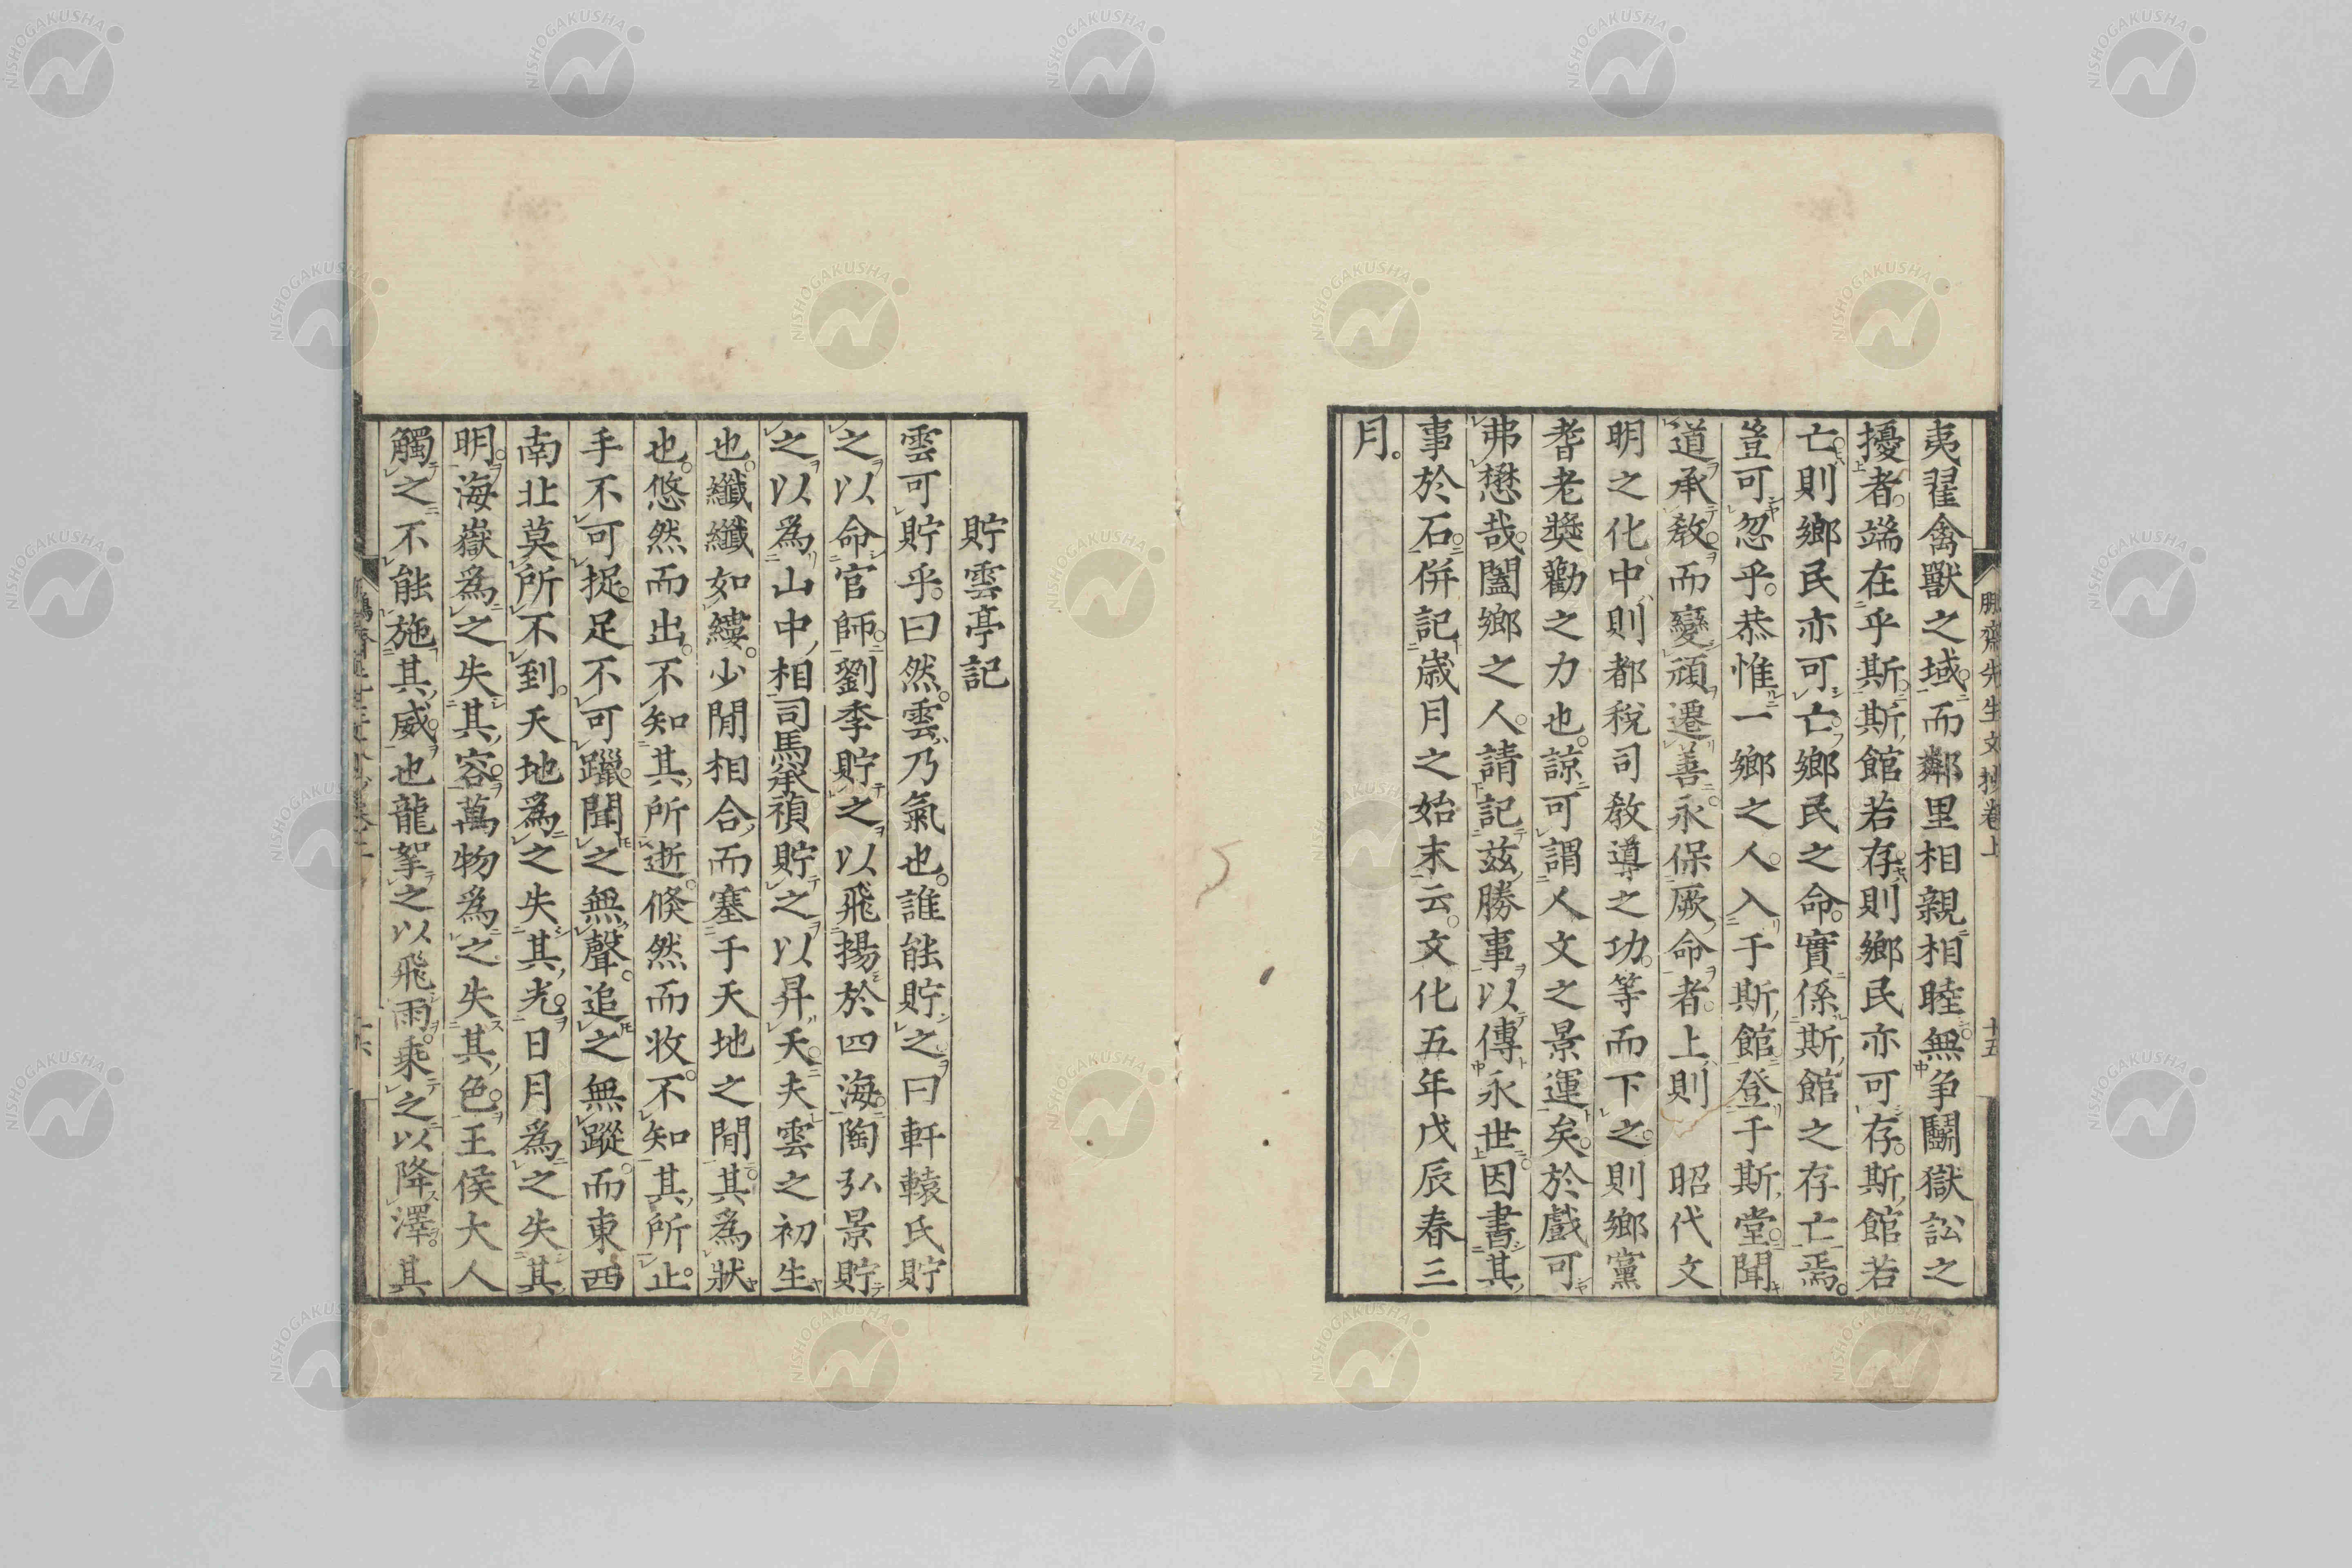 夷翟禽獸之域而鄰里相親相睦無争鬭獄訟之
擾者端在乎斯斯館若存則鄉民亦可存斯館若
亡則鄉民亦可亡鄉民之命實係斯館之存亡焉
豈可忽乎恭惟一鄉之人入于斯館登于斯堂聞
道承教而變頑遷善永保厥命者上則 昭代文
明之化中則都税司教導之功等而下之則鄉黨
耆老奬勸之力也諒可謂人文之景運矣於戲可
弗懋哉闔鄉之人請記茲勝事以傳永世因書其
事於石併記歲月之始末云文化五年戊辰春三
月
貯雲亭記
雲可貯乎曰然雲乃氣也誰能貯之曰軒轅氏貯
之以命官師劉季貯之以飛揚於四海陶弘景貯
之以為山中相司馬承禎貯之以昇天夫雲之初生
也纖纖如縷少間相合而塞于天地之間其為狀
也悠然而出不知其所逝倏然而收不知其所止
手不可捉足不可躐聞之無聲追之無蹤而東西
南北莫所不到天地為之失其光日月為之失其
明海嶽為之失其容萬物為之失其色王侯大人
觸之不能施其威也龍拏之以飛雨乘之以降澤其
鵬齋先生文抄卷上
十五
NISHOGAKUSHA